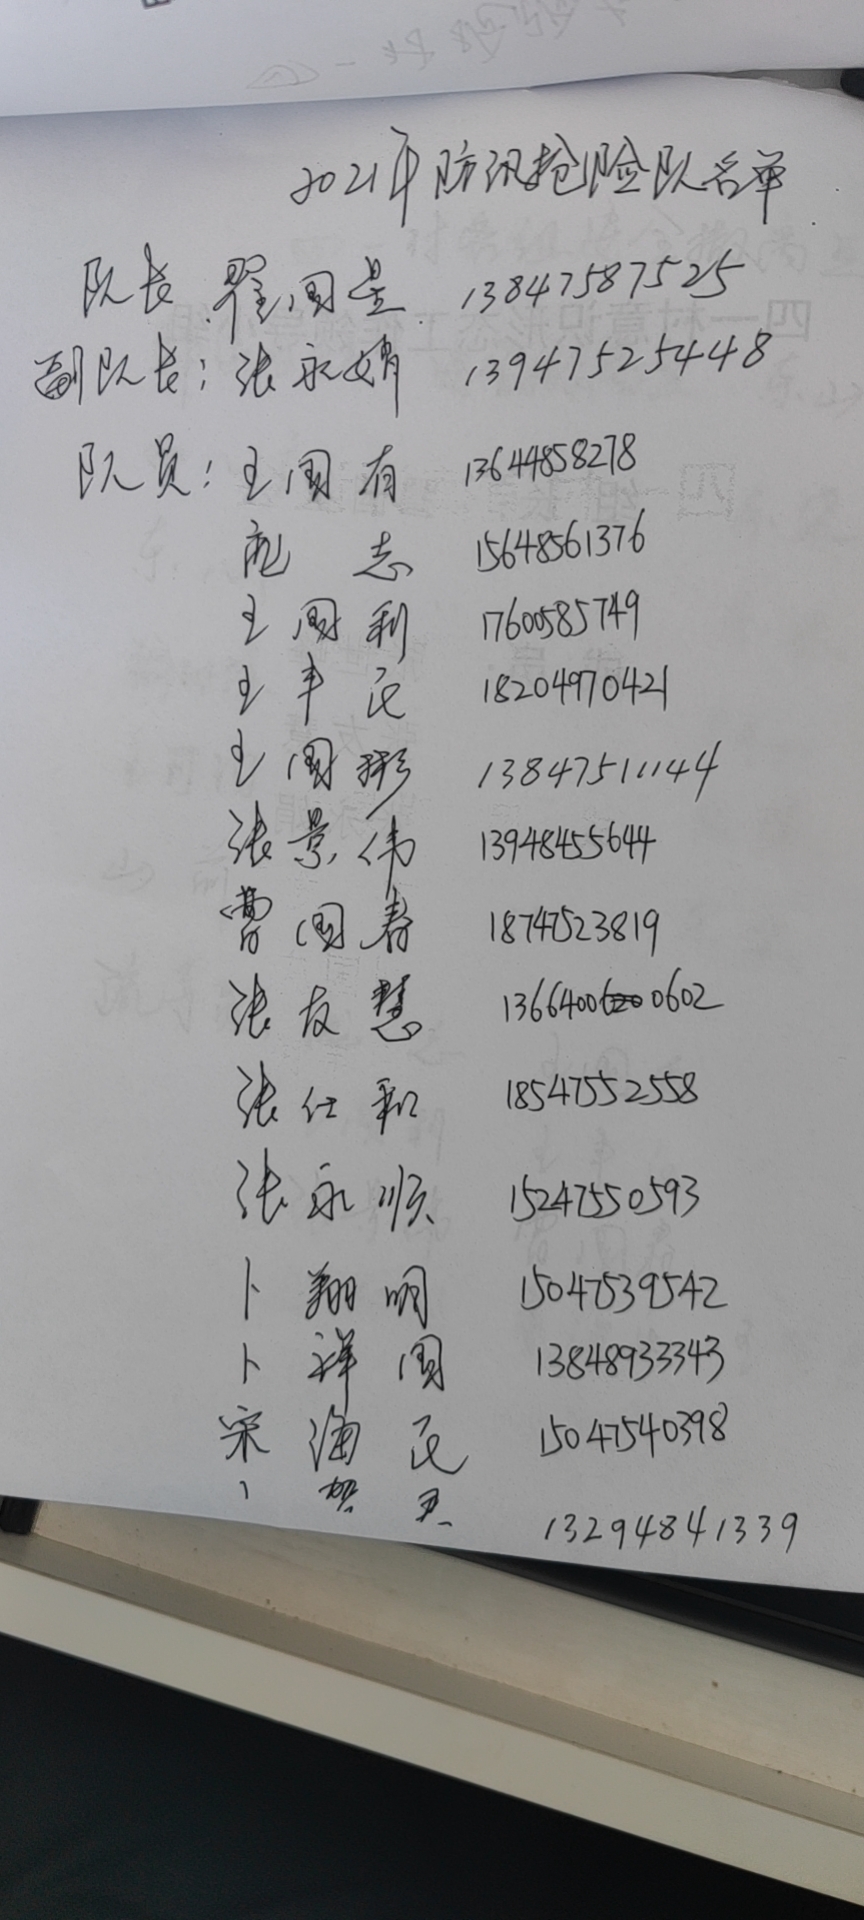 2021年防汛抢险队名单
队长 翟国星 13847587525
副队长:张永婧 13947525448
队员:王国有 13644858278
庞志 15648561376
王国利 17600585749
王丰民 18204970421
王国彬 13847511144
张景伟 13948455644
曹国春 18747523819
张友慧 13664000602
张仕和 18547552558
张永顺 15247550593
卜翔明 15047539542
卜祥国 13848933343
宋海民 15047540398
13294841339